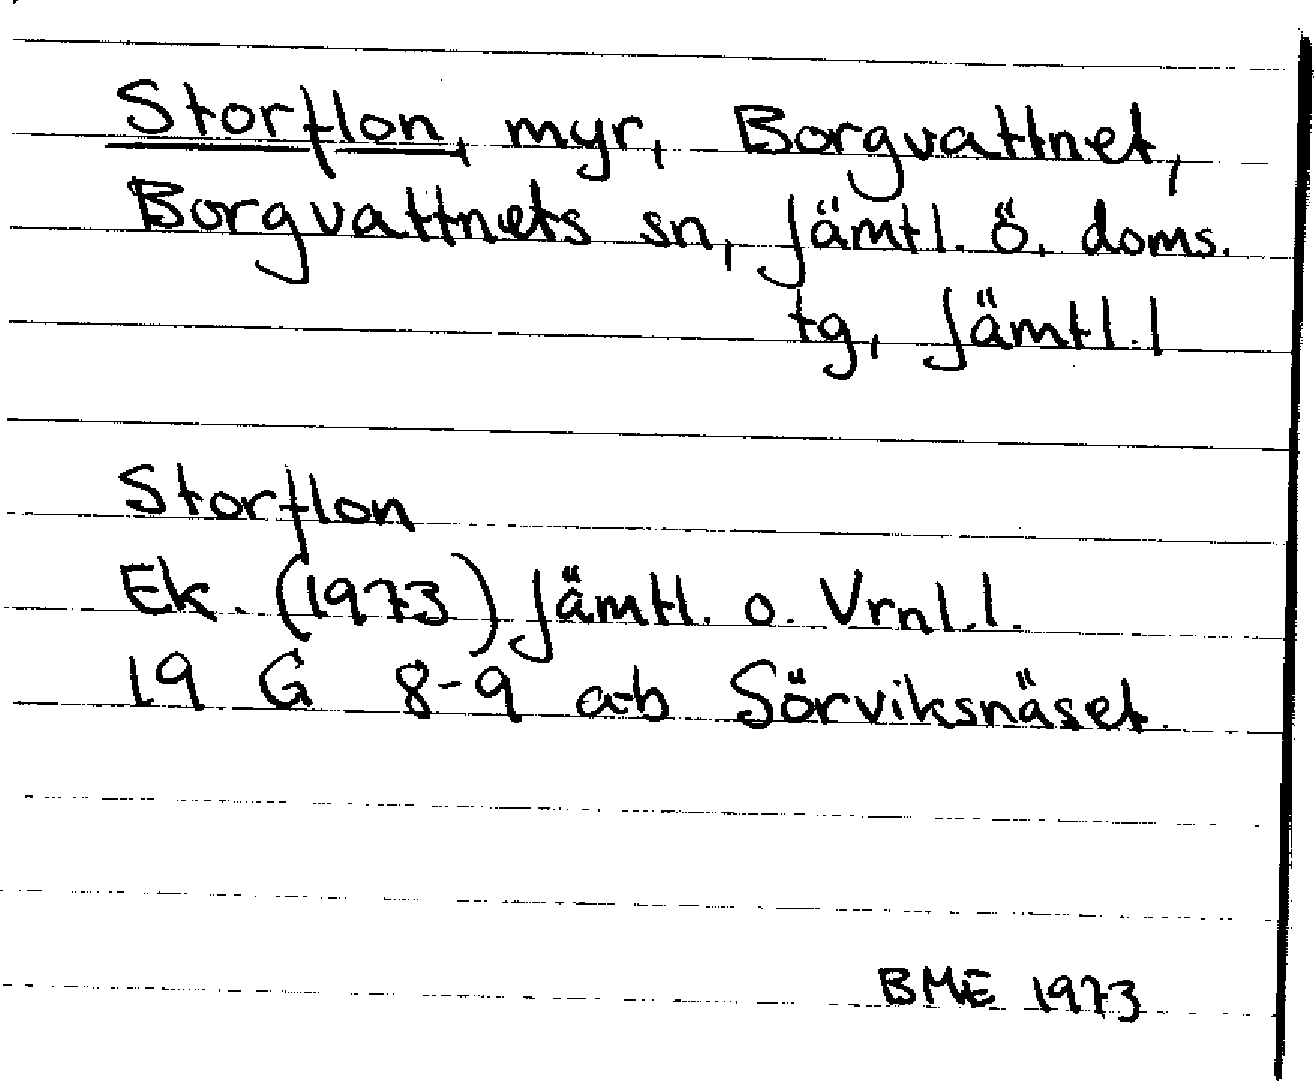 Storflon, myr, Borgvattnet,
Borgvattnets sn, Jämtl. ö. doms.
tg, Jämtl. l
Storflon
Ek. (1973) Jämtl. o. Vrnl. l.
19 G 8-9 a-b Sörviksnäset
BME 1973